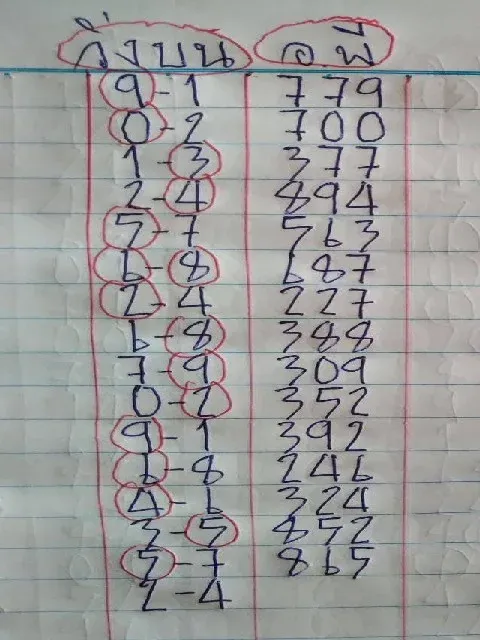 วิ่งบน อ.พี
9-1 779
0-2 700
1-3 377
2-4 894
5-7 563
6-8 687
2-4 227
6-8 388
7-9 309
0-2 352
9-1 392
6-8 246
4-6 324
3-5 852
5-7 865
2-4